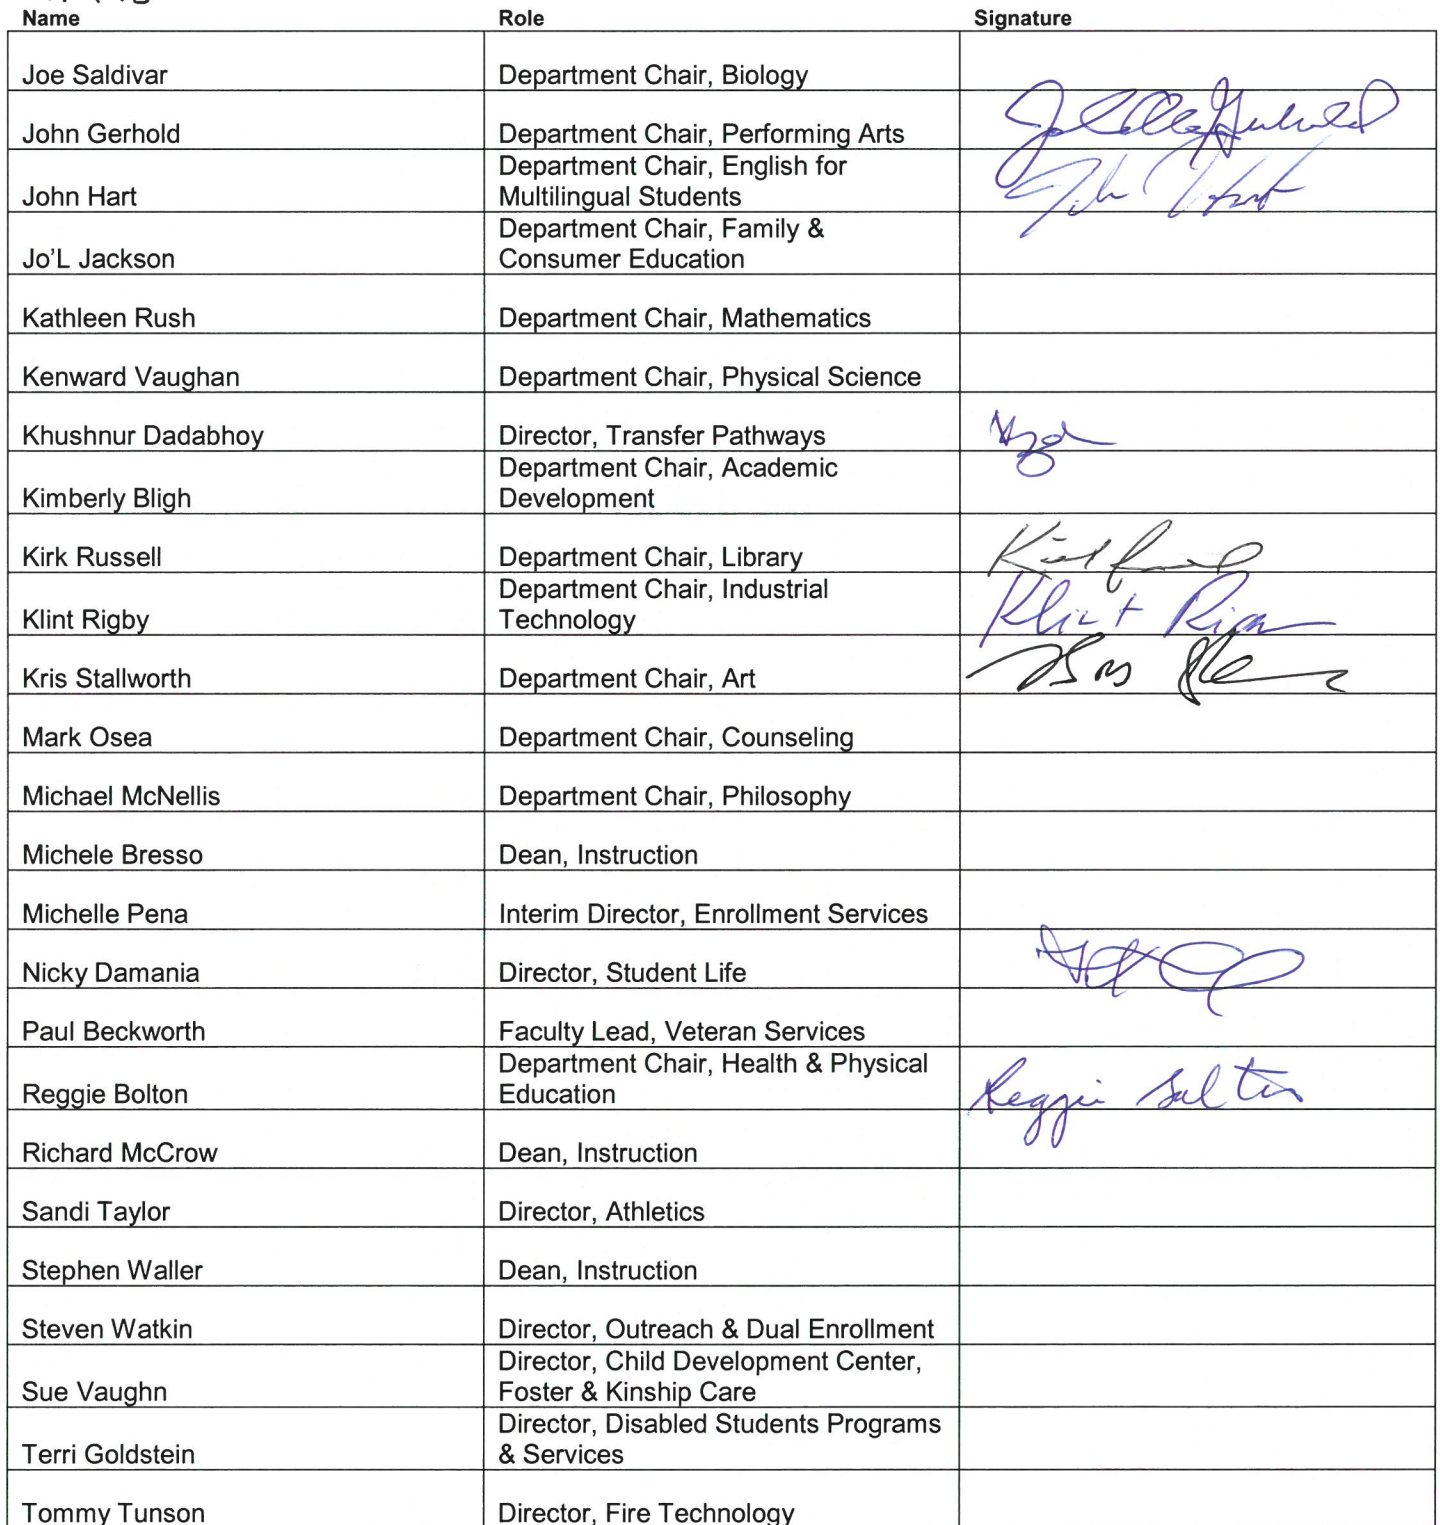 Name Role Signature
Joe Saldivar Department Chair, Biology
John Gerhold Department Chair, Performing Arts
Department Chair, English for
John Hart Multilingual Students John Hart
Department Chair, Family &
Jo'L Jackson Consumer Education
Kathleen Rush Department Chair, Mathematics
Kenward Vaughan Department Chair, Physical Science
Khushnur Dadabhoy Director, Transfer Pathways
Department Chair, Academic
Kimberly Bligh Development
Kirk Russell Department Chair, Library
Department Chair, Industrial
Klint Rigby Technology Klint
Kris Stallworth Department Chair, Art
Mark Osea Department Chair, Counseling
Michael McNellis Department Chair, Philosophy
Michele Bresso Dean, Instruction
Michelle Pena Interim Director, Enrollment Services
Nicky Damania Director, Student Life
Paul Beckworth Faculty Lead, Veteran Services
Department Chair, Health & Physical
Reggie Bolton Education Reggie Bolton
Richard McCrow Dean, Instruction
Sandi Taylor Director, Athletics
Stephen Waller Dean, Instruction
Steven Watkin Director, Outreach & Dual Enrollment
Director, Child Development Center,
Sue Vaughn Foster & Kinship Care
Director, Disabled Students Programs
Terri Goldstein & Services
Tommy Tunson Director, Fire Technology